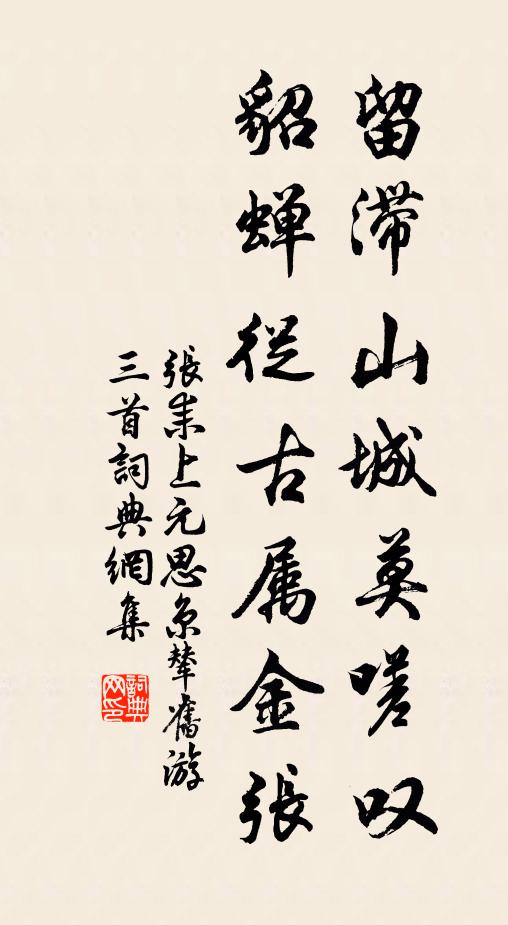 留滞山城莫嗟叹
貂蝉從古属金張
張耒上元思京輦舊游
三首詞典網集
詞典网印